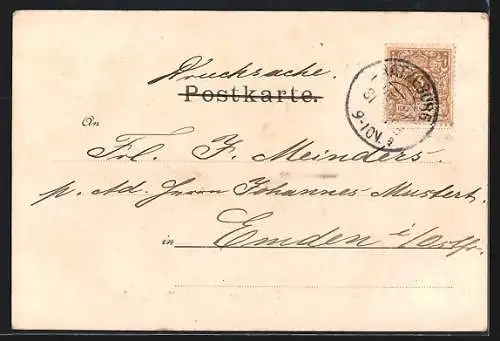 Drucksache.
Postkarte.
An
Frl. J. Meinders.
p. Ad. Herrn Johannes Mustert.
in Emden i/Ostfr.
9-10V.